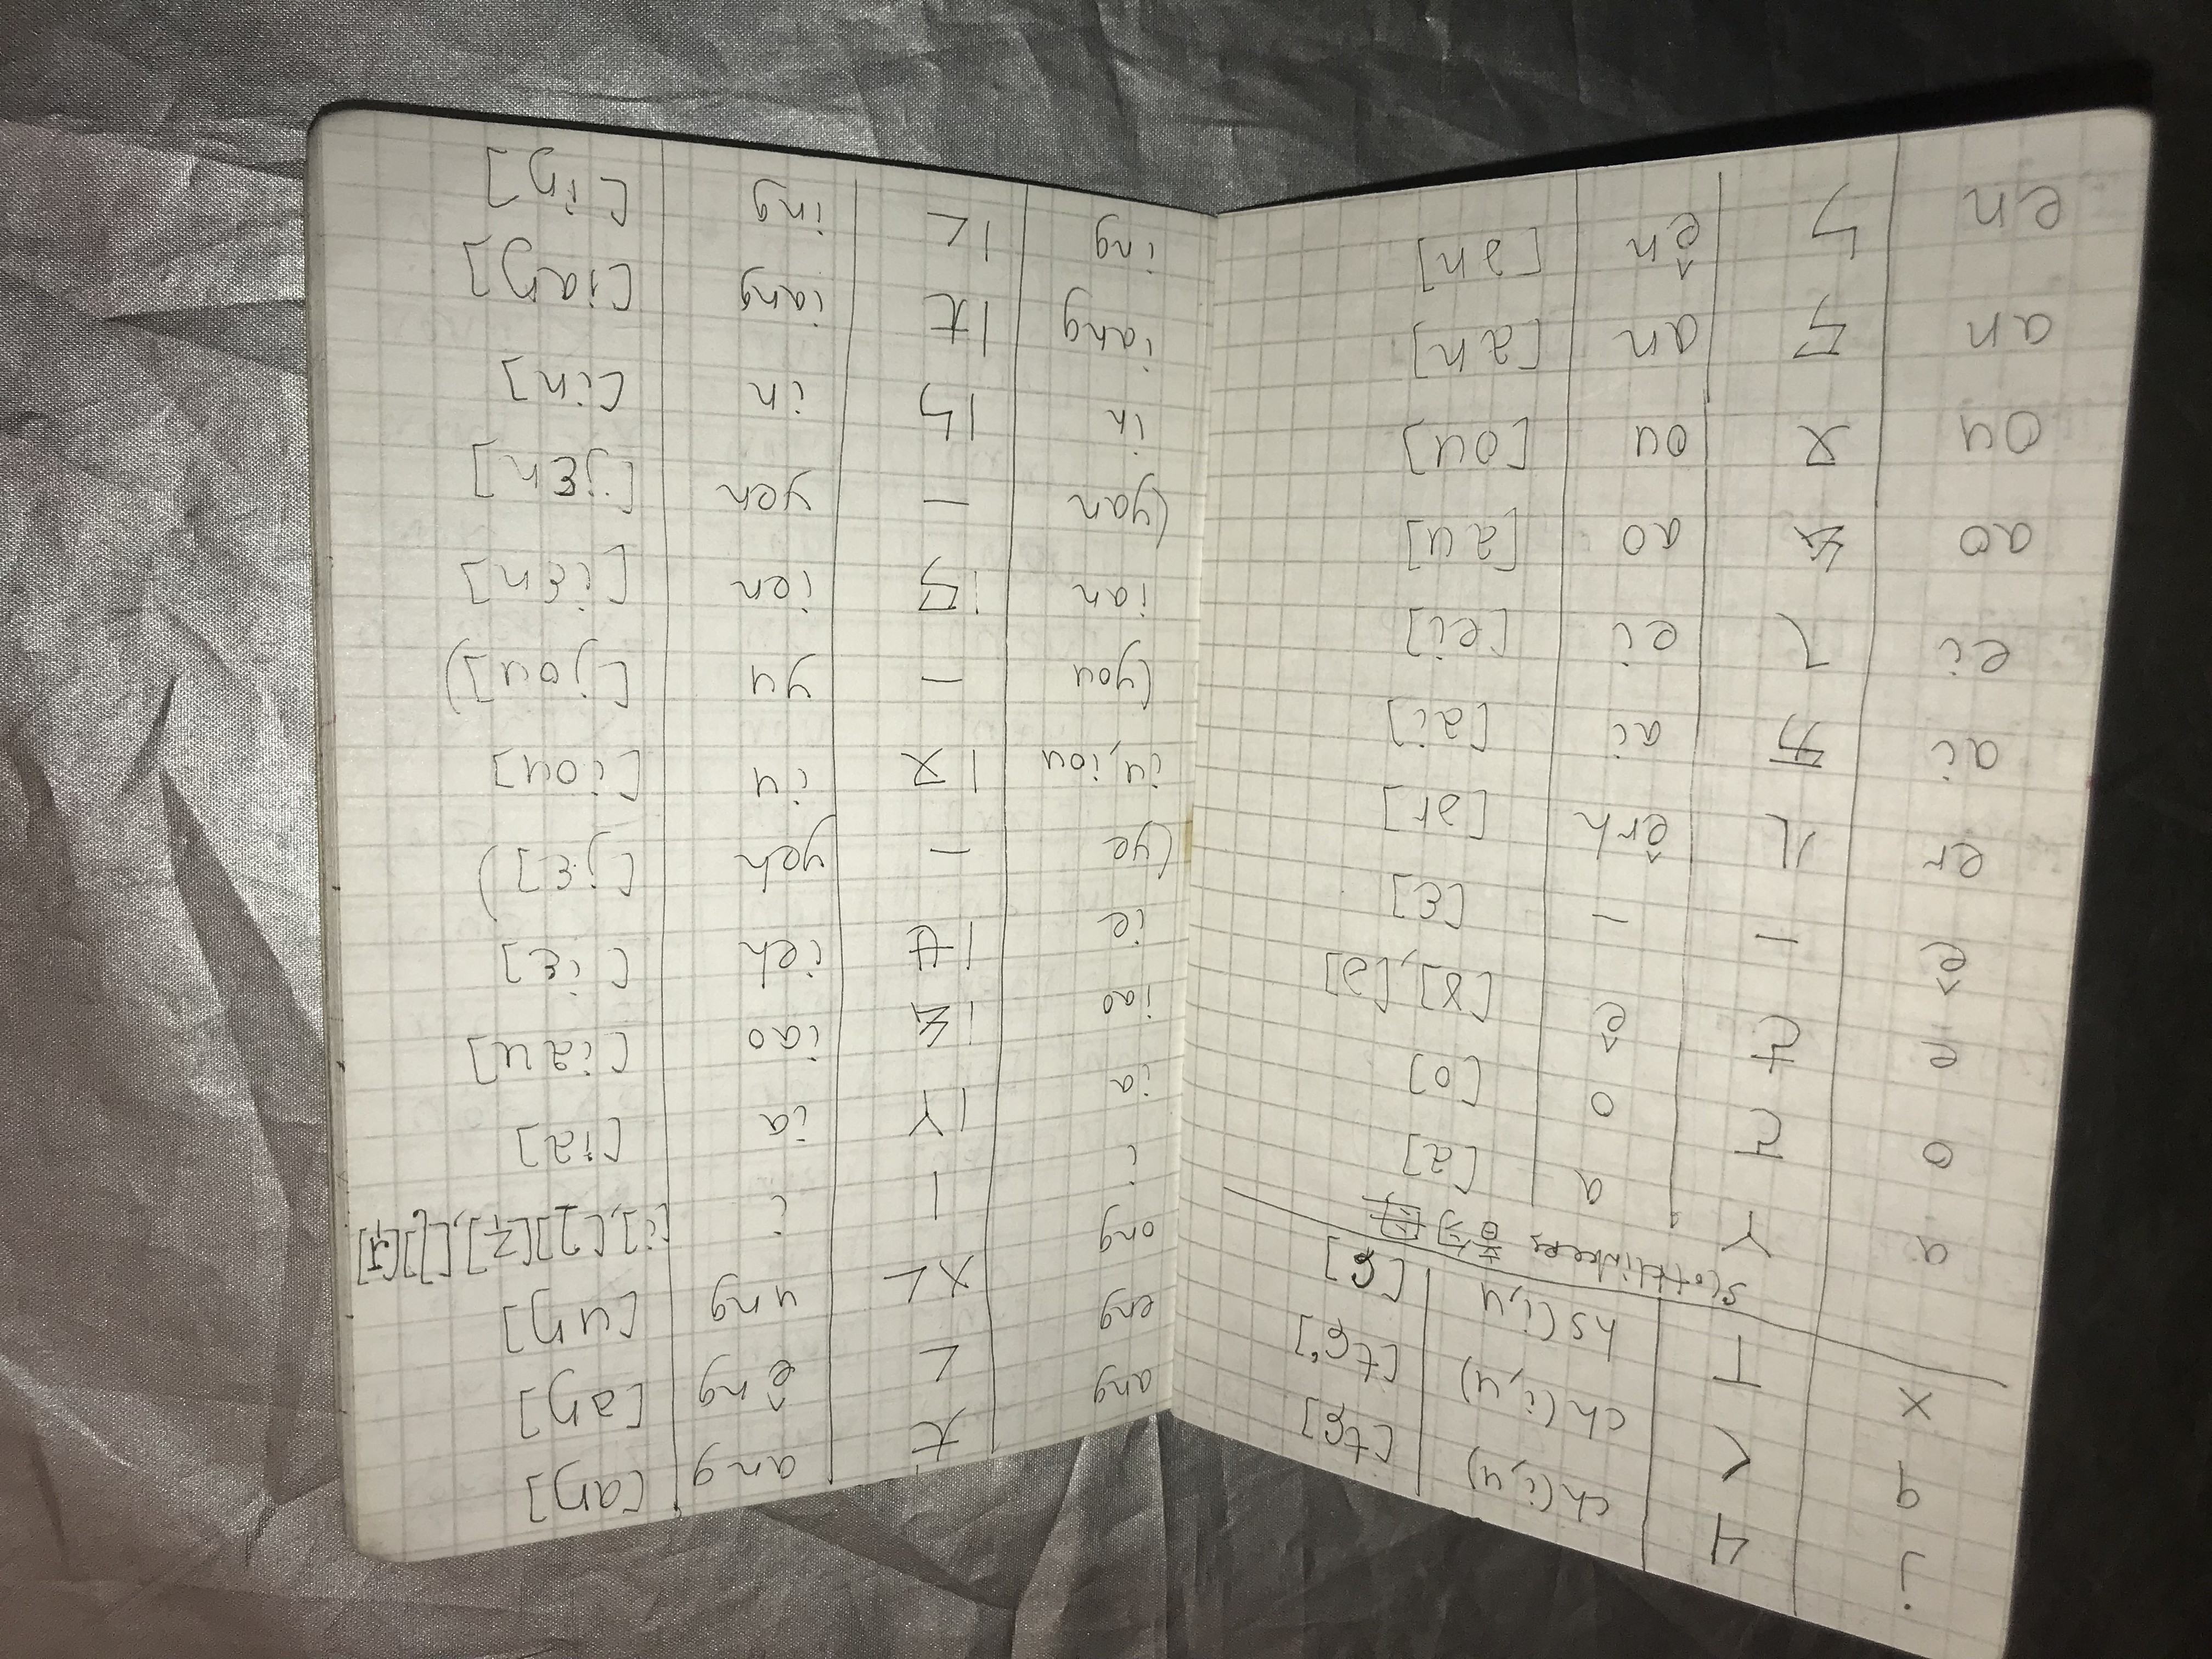 j ㄐ ch(i,u) [tɕ]
q ㄑ ch(i,u) [tɕʻ]
x ㄒ hs(i,u [ɕ]
Slotklinkers 音匀母
a ㄚ a [a]
o ㄛ o [o]
e ㄜ ê [ɤ],[ə]
ê — — [ɛ]
er ㄦ êrh [ər]
ai ㄞ ai [ai]
ei ㄟ ei [ei]
ao ㄠ ao [au]
ou ㄡ ou [ou]
an ㄢ an [an]
en ㄣ ên [ən]
ang ㄤ ang [aŋ]
eng ㄥ êng [əŋ]
ong ㄨㄥ ung [uŋ]
i ㄧ i [i],[ʅ]
ia ㄧㄚ ia [ia]
iao ㄧㄠ iao [iau]
ie ㄧㄝ ieh [iɛ]
(ye — yeh [jɛ])
iu, iou ㄧㄡ iu [iou]
(you — yu [jou])
ian ㄧㄢ ien [iɛn]
(yan — yen [jɛn]
in ㄧㄣ in [in]
iang ㄧㄤ iang [iaŋ]
ing ㄧㄥ ing [iŋ]